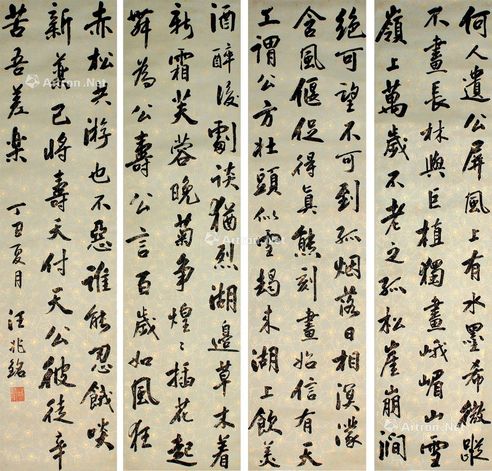 何人遺公屏風上有水墨希微蹤
不畫長林與巨植獨畫峨嵋山雪
嶺上萬歲不老之孤松崖崩澗
絕可望不可到孤烟落日相溟濛
含風偃促得真態刻畫始信有天
工謂公方壯頭似雪朅來湖上飲美
酒醉後劇談猶烈湖邊草木着
新霜芙蓉晚菊爭煌〻插花起
舞為公壽公言百歲如風狂
赤松共游也不惡誰能忍餓啖
藥已將壽夭付天公彼徒辛
苦吾差樂
丁丑夏月
汪兆銘
Artron.Net